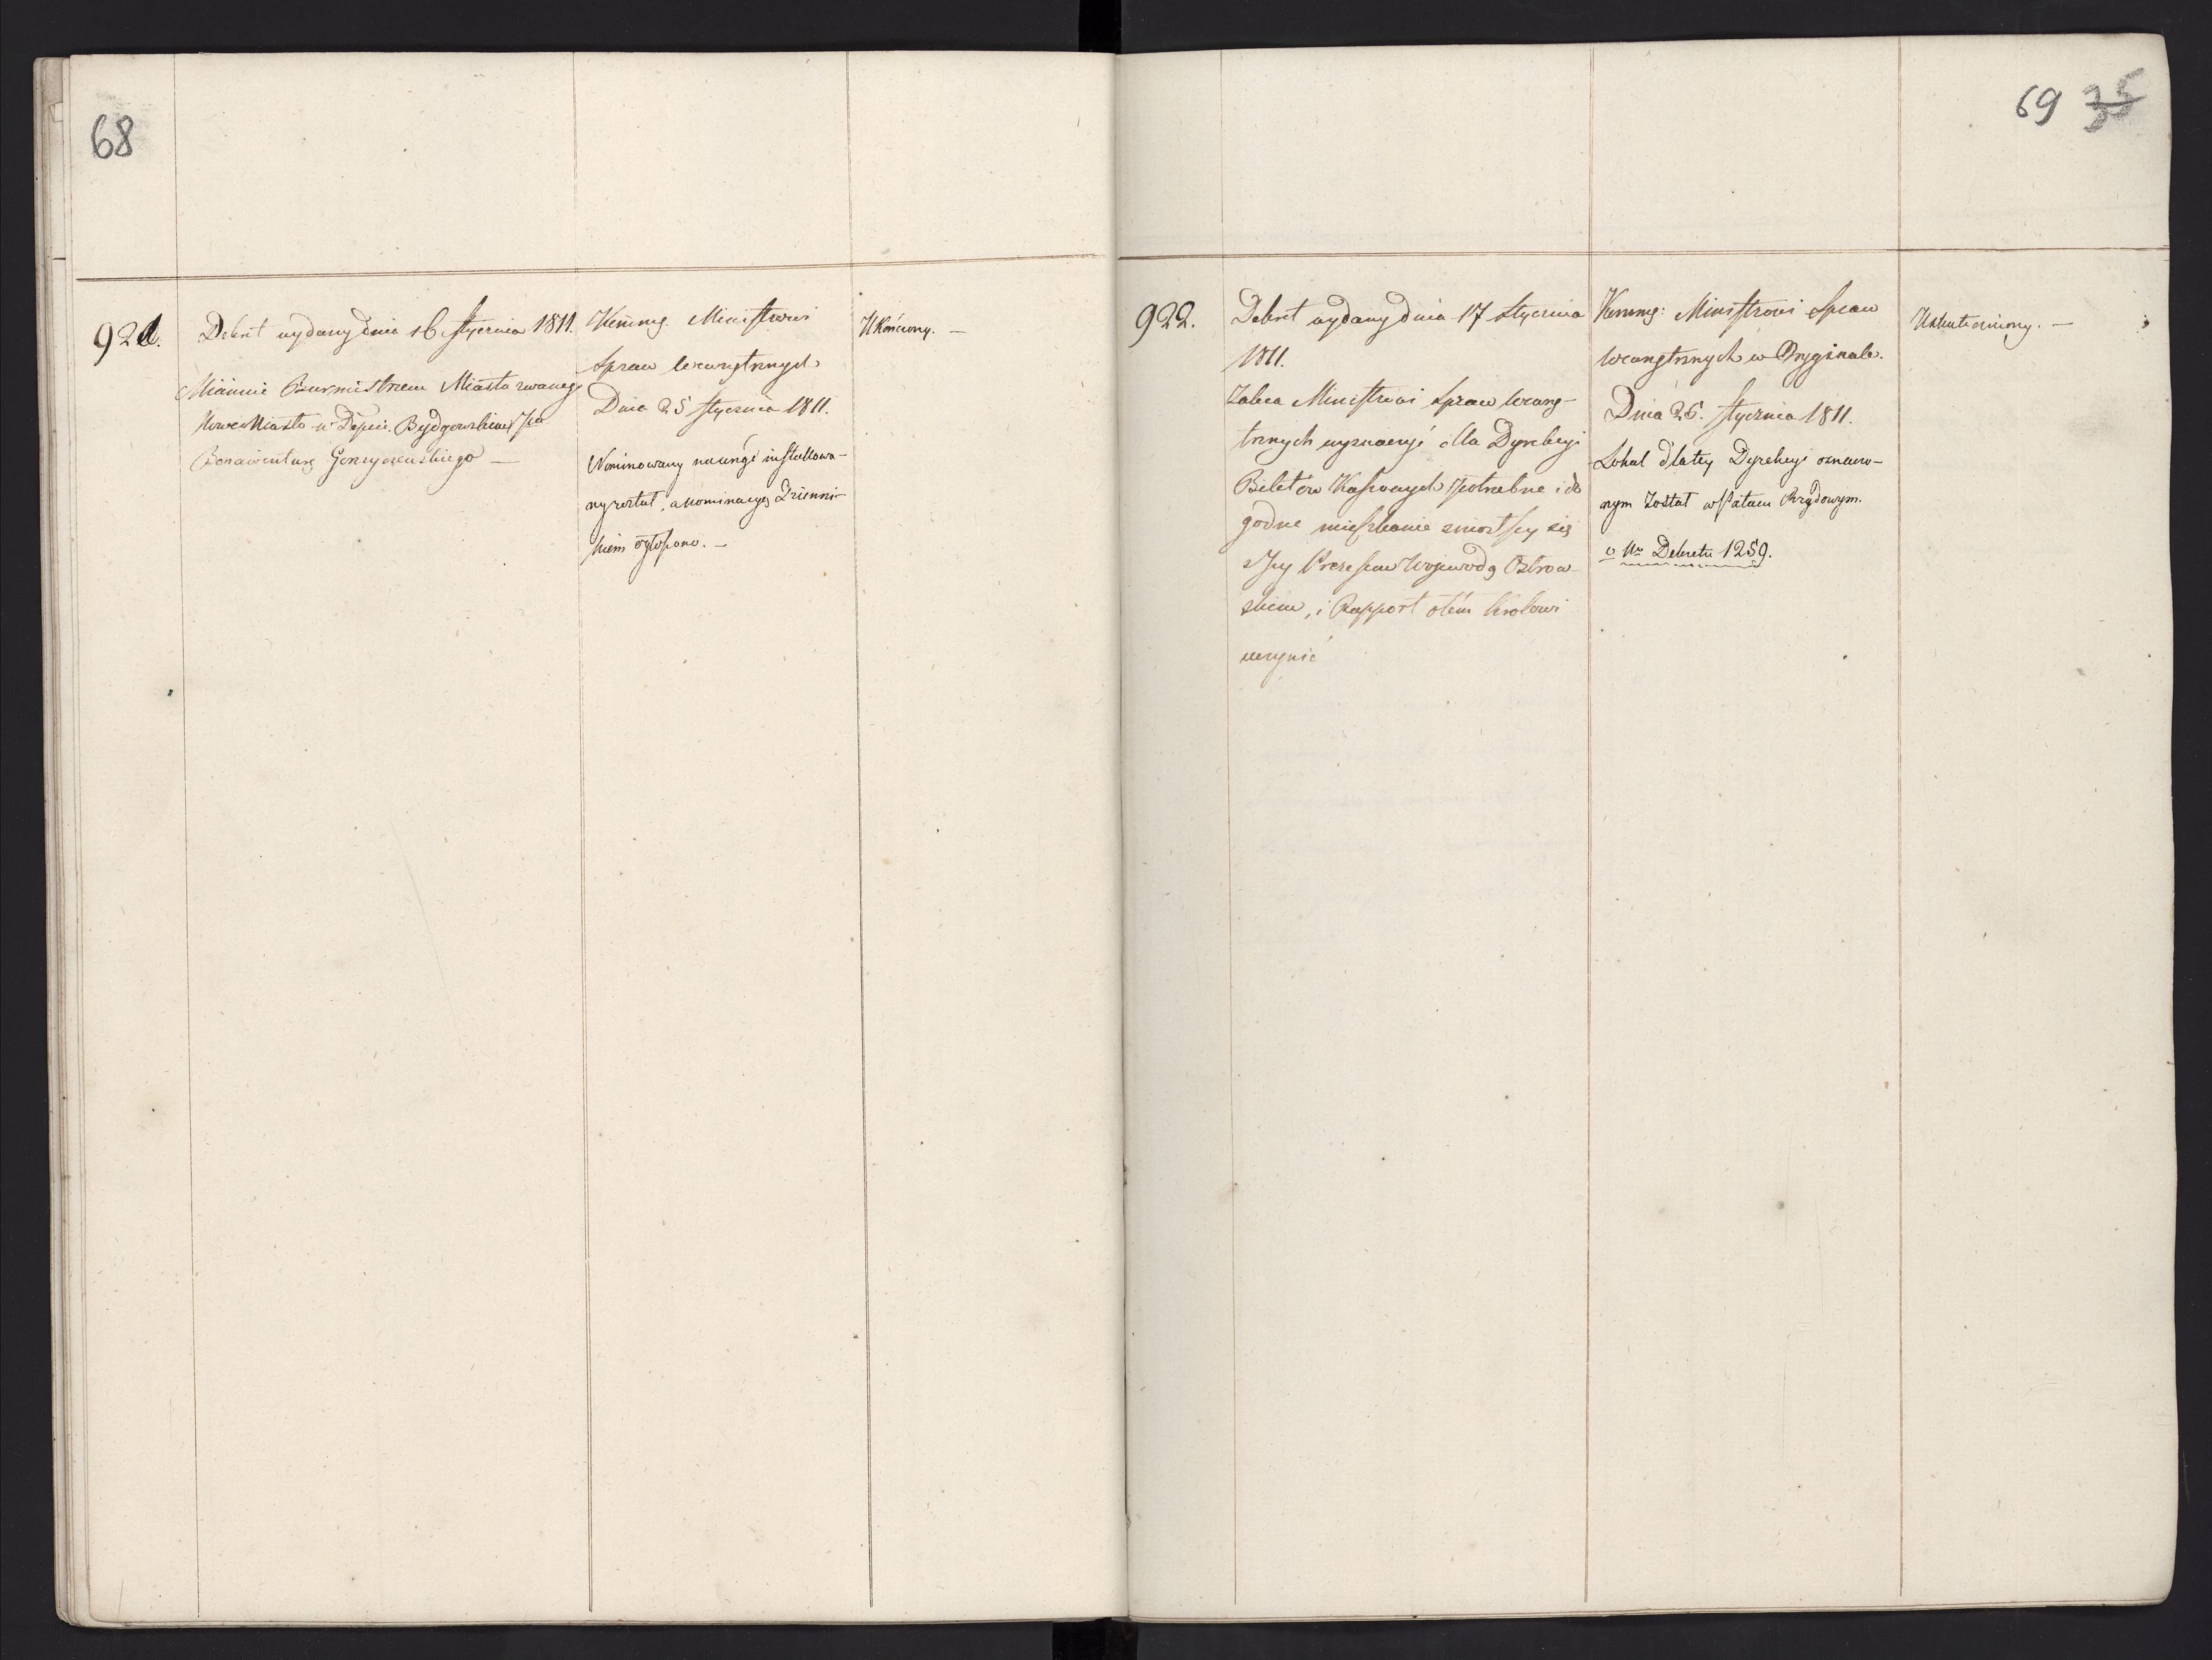 68
921.
Dekret wydany dnia 16 stycznia 1811.
Mianuie Burmistrzem Miasta zwanego
Nowe Miasto w Depcie. Bydgowskiem JPa
Bonawenturę Gorzyczewskiego —
Komng. Ministrowi
Spraw Wewnętrznych
Dnia 25 stycznia 1811.
Nominowany na urząd installowa-
ny został, a nominacyą Dzienni-
kiem ogłoszono. —
Ukończony. —
69 35
922.
Dekret wydany dnia 17 stycznia
1811.
Zaleca Ministrowi Spraw Wewnę-
trznych wyznaczyć dla Dyrekcyi
Biletów Kassowych potrzebne i do
godne mieszkanie zniosłszy się
z Jey Prezesem Wojewodą Ostrow-
skiem, i Rapport otém Królowi
uczynić
Komng: Ministrowi Spraw
Wewnętrznych w Oryginale.
Dnia 25. stycznia 1811.
Lokal dla tey Dyrekcyi oznaczo-
nym został w Pałacu Rządowym.
v. No Dekretu 1259.
Uskuteczniony. —